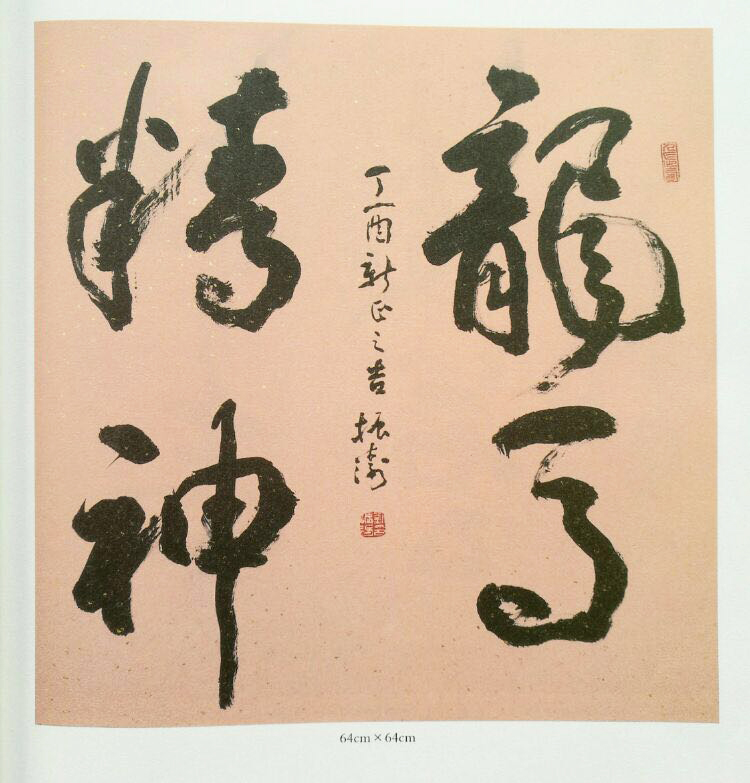 龍馬
精神
丁酉新正之吉 振濤
64cm×64cm